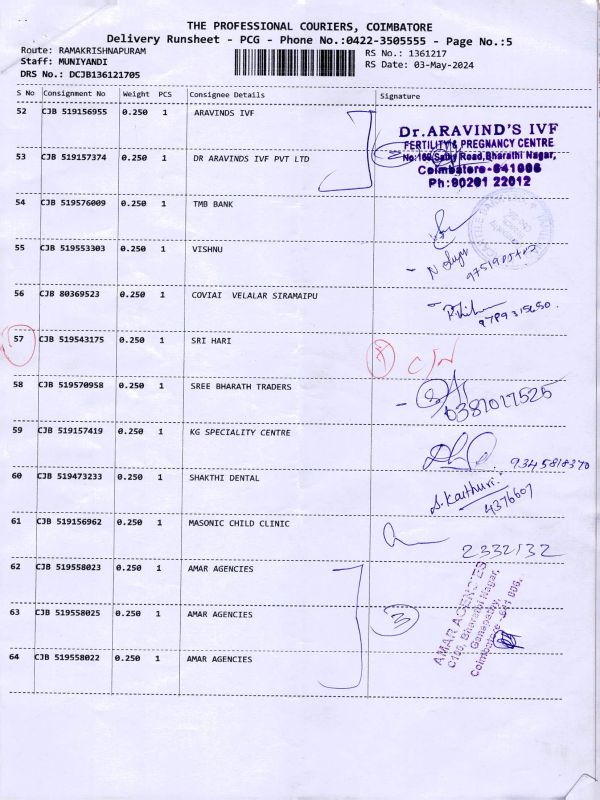 THE PROFESSIONAL COURIERS, COIMBATORE
Delivery Runsheet - PCG - Phone No.:0422-3505555 - Page No.:5
Route: RAMAKRISHNAPURAM
RS No.: 1361217
Staff: MUNIYANDI
RS Date: 03-May-2024
DRS No.: DCJB136121705
S No Consignment No Weight PCS Consignee Details Signature
52 CJB 519156955 0.250 1 ARAVINDS IVF
Dr.ARAVIND'S IVF
FERTILITY & PREGNANCY CENTRE
53 CJB 519157374 0.250 1 DR ARAVINDS IVF PVT LTD
No:169, Sathy Road, Bharathi Nagar,
Coimbatore-641006
Ph:90291 22012
54 CJB 519576009 0.250 1 TMB BANK
55 CJB 519553303 0.250 1 VISHNU
56 CJB 80369523 0.250 1 COVIAI VELALAR SIRAMAIPU
9789315650
57 CJB 519543175 0.250 1 SRI HARI
58 CJB 519570958 0.250 1 SREE BHARATH TRADERS
59 CJB 519157419 0.250 1 KG SPECIALITY CENTRE
9345818370
60 CJB 519473233 0.250 1 SHAKTHI DENTAL
S. Kasthuri
4376607
61 CJB 519156962 0.250 1 MASONIC CHILD CLINIC
2332132
62 CJB 519558023 0.250 1 AMAR AGENCIES
63 CJB 519558025 0.250 1 AMAR AGENCIES
3
AMAR AGENCIES
C166, Bharathi Nagar,
Ganapathy,
Coimbatore - 641 006.
64 CJB 519558022 0.250 1 AMAR AGENCIES